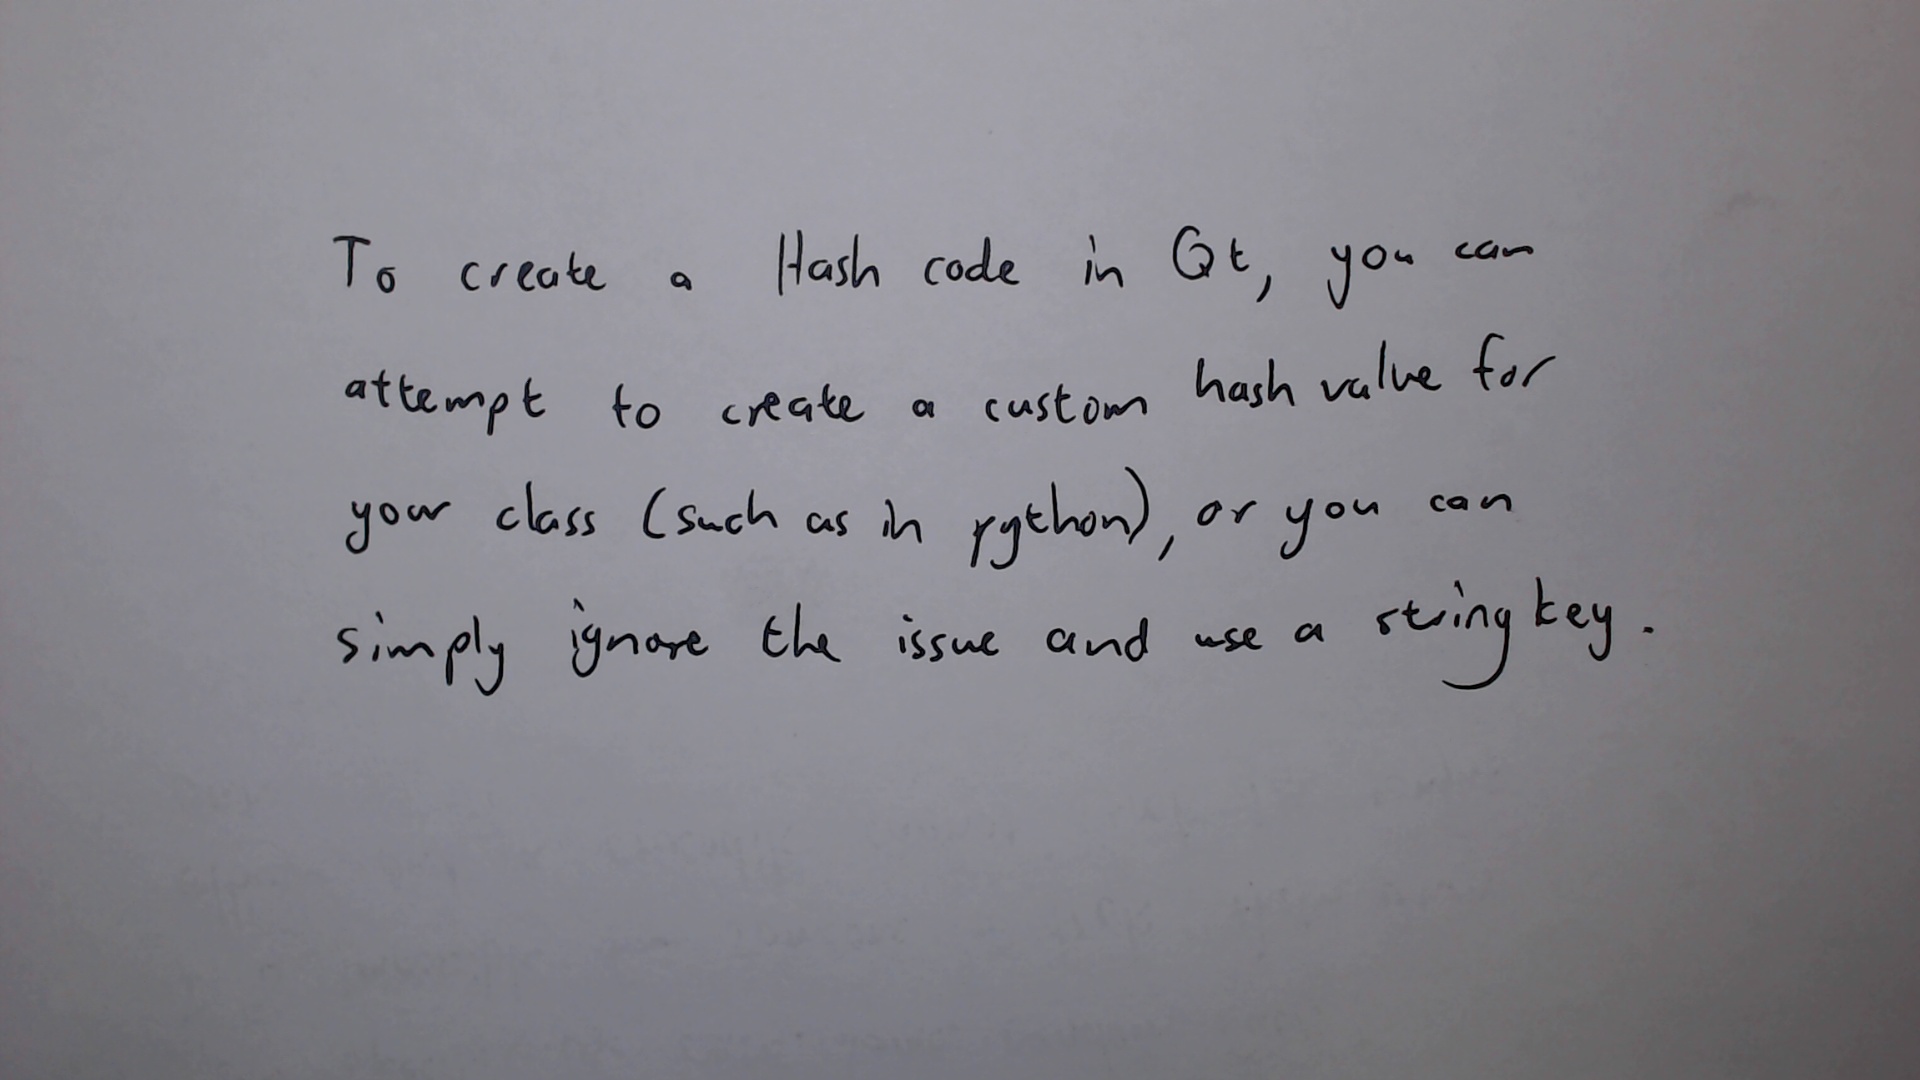 To create a Hash code in Qt, you can
attempt to create a custom hash value for
your class (such as in python), or you can
simply ignore the issue and use a string key.